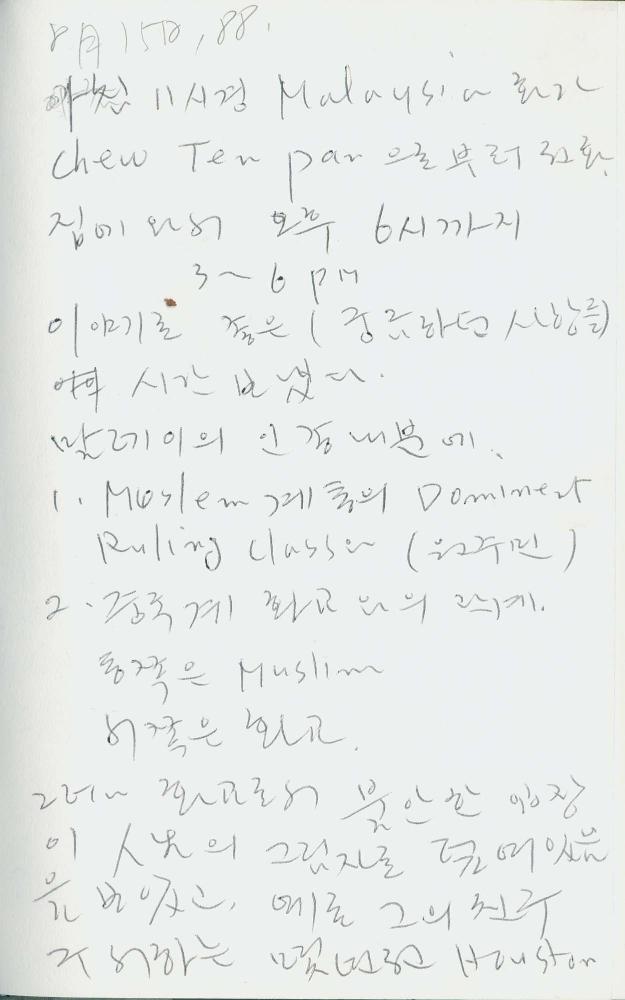 8月15日, 88.
아침 11시경 Malaysia 화가
Chew Ten pan 으로부터 전화
집에 와서 오후 6시까지
3~6 pm
이야기로 좋은 (
시간 보냈다.
말레이의 인종
1. Moslem 계통의 Dominent
Ruling Class와 (원주민)
2. 중국계 화교와의 관계.
동쪽은 Muslim
서쪽은 화교.
그러나 화교로서 불안한 입장
이 人生의 그림자로 덮여있음
을 보았고, 예로 그의 친구
몇년전 Houston